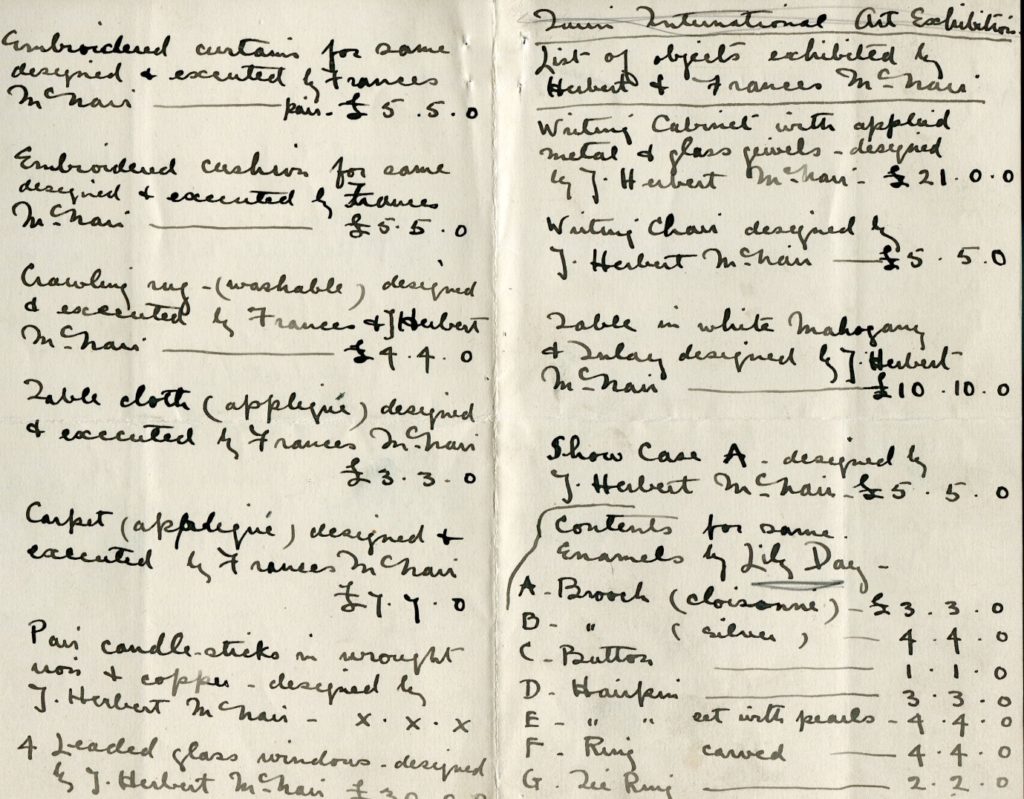 Embroidered curtains for same
designed & executed by Frances
McNair — pair - £5.5.0
Embroidered cushion for same
designed & executed by Frances
McNair — £5.5.0
Crawling rug - (washable) designed
& executed by Frances & J Herbert
McNair — £4.4.0
Table cloth (appliqué) designed
& executed by Frances McNair
£3.3.0
Carpet (appliqué) designed &
executed by Frances McNair
£7.7.0
Pair candle-sticks in wrought
iron & copper - designed by
J. Herbert McNair - x.x.x
4 Leaded glass windows - designed
by J. Herbert McNair
Turin International Art Exhibition.
List of objects exhibited by
Herbert & Frances McNair
Writing Cabinet with applied
metal & glass jewels - designed
by J. Herbert McNair - £21.0.0
Writing Chair designed by
J. Herbert McNair — £5.5.0
Table in white Mahogany
& Inlay designed by J. Herbert
McNair — £10.10.0
Show Case A - designed by
J. Herbert McNair - £5.5.0
Contents for same.
Enamels by Lily Day -
A - Brooch (cloisonné) - £3.3.0
B - " (silver) — 4.4.0
C - Button — 1.1.0
D - Hairpin — 3.3.0
E - " " set with pearls - 4.4.0
F - Ring carved — 4.4.0
G - Tie Ring — 2.2.0